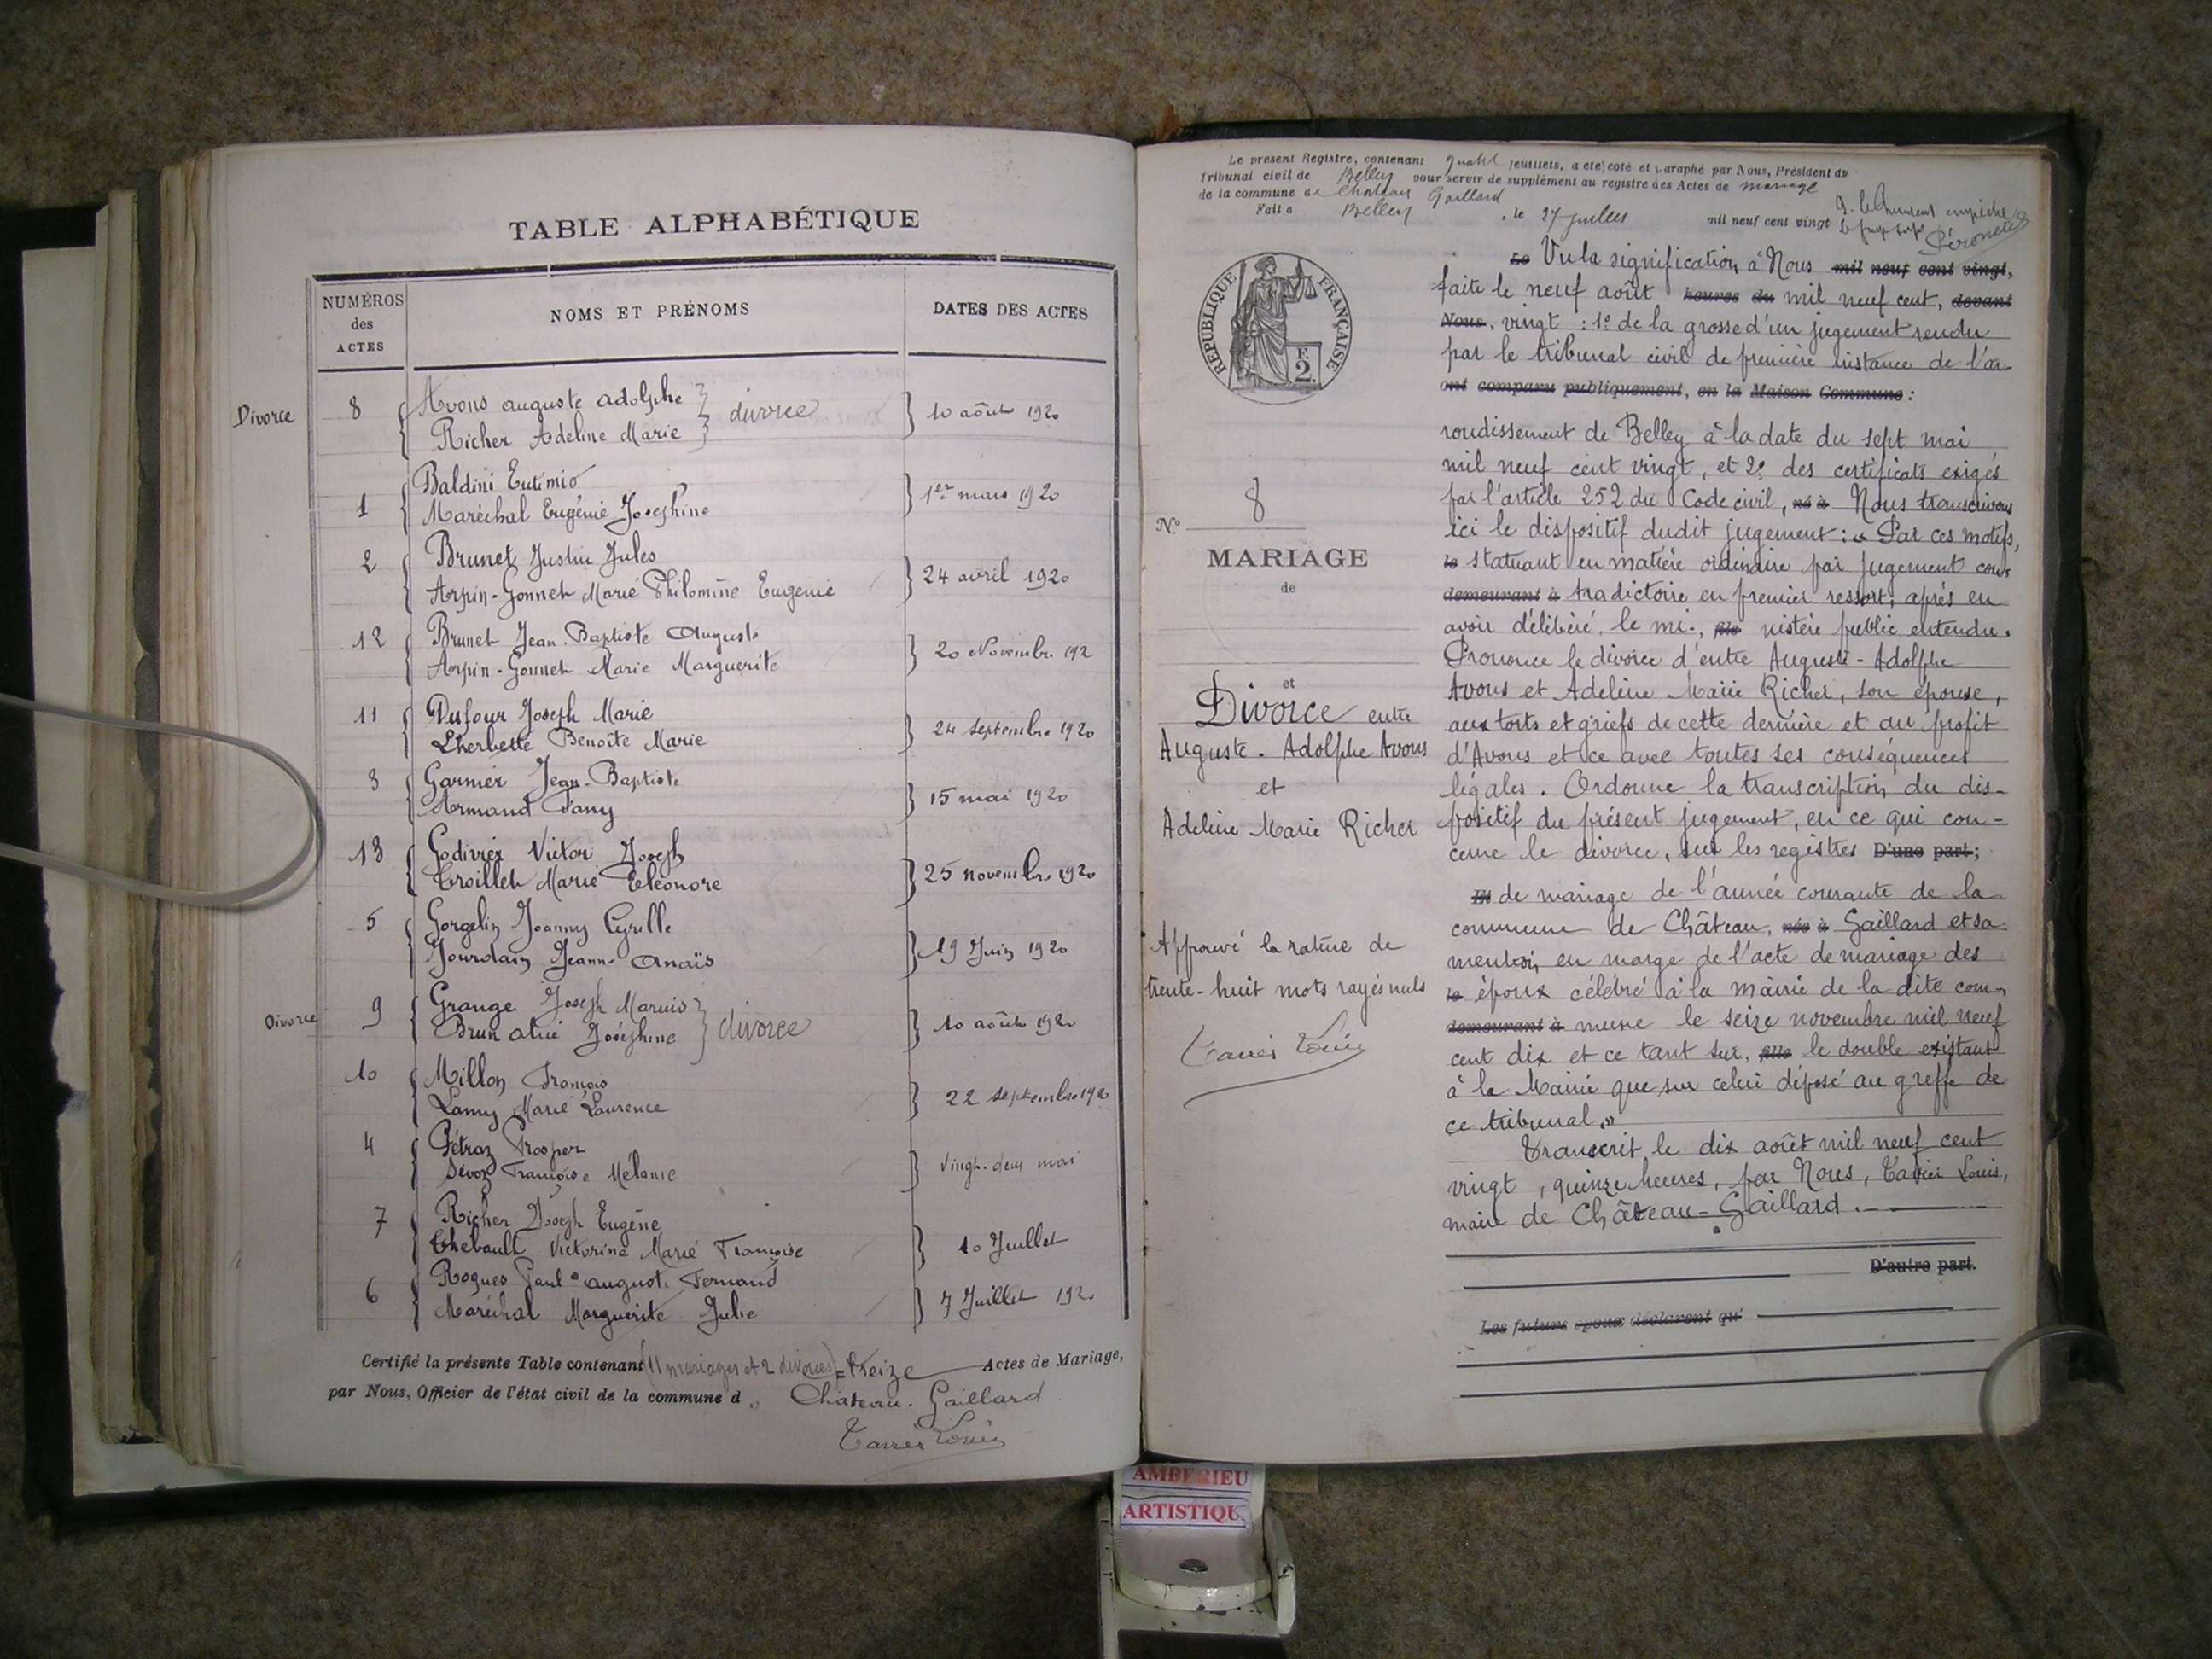 TABLE ALPHABÉTIQUE
NUMÉROS
des
ACTES
NOMS ET PRÉNOMS
DATES DES ACTES
Divorce 8 Avons auguste adolphe divorce 10 août 1920
Richer Adeline Marie
Baldini Eutimio
1 Maréchal Eugénie Joséphine 1er mars 1920
2 Brunet Justin Jules
Arpin-Gonnet Marie Philomène Eugénie 24 avril 1920
12 Brunet Jean-Baptiste Auguste
Arpin-Gonnet Marie Marguerite 20 Novembre 192
11 Dufour Joseph Marie
Lherbette Benoîte Marie 24 septembre 1920
3 Garnier Jean-Baptiste
Armand Fany 15 mai 1920
13 Godivier Victor Joseph
Troillet Marie Eléonore 25 novembre 1920
5 Gorgelin Joanny Cyrille
Jourdain Jeanne Anaïs 19 Juin 1920
Divorce 9 Grange Joseph Marius divorce 10 août 1920
Brun alice Joséphine
10 Millon François
Lamy Marie Laurence 22 septembre 1920
4 Pétraz Prosper
Françoise Mélanie Vingt-deux mai
7 Richer Joseph Eugène
Thebault Victorine Marie Françoise 10 Juillet
6 Roques Paul auguste Fernand
Maréchal Marguerite Julie 7 Juillet 192
Certifié la présente Table contenant (11 mariages et 2 divorces) = treize Actes de Mariage,
par Nous, Officier de l'état civil de la commune d Château-Gaillard
Le présent Registre, contenant feuillets, a été coté et paraphé par Nous, Président du
Tribunal civil de Belley pour servir de supplément au registre des Actes de mariage
de la commune de Chateau Gaillard
Fait à Belley, le 27 juillet mil neuf cent vingt
RÉPUBLIQUE FRANÇAISE
E
2.
No 8
MARIAGE
de
et
Divorce entre
Auguste-Adolphe Avons
et
Adeline Marie Richer
Approuvé la rature de
trente-huit mots rayés nuls
Le Vu la signification à Nous mil neuf cent vingt,
faite le neuf août heures du mil neuf cent, devant
Nous, vingt : 1° de la grosse d'un jugement rendu
par le tribunal civil de première instance de l'ar-
ont comparu publiquement, en la Maison Commune :
rondissement de Belley à la date du sept mai
mil neuf cent vingt, et 2° des certificats exigés
par l'article 252 du Code civil, né à Nous transcrivons
ici le dispositif dudit jugement : « Par ces motifs,
le statuant en matière ordinaire par jugement con-
demeurant à tradictoire en premier ressort, après en
avoir délibéré, le mi-, fils nistère public entendu.
Prononce le divorce d'entre Auguste-Adolphe
Avons et Adeline Marie Richer, son épouse,
aux torts et griefs de cette dernière et au profit
d'Avons et ce avec toutes ses conséquences
légales. Ordonne la transcription du dis-
positif du présent jugement, en ce qui con-
cerne le divorce, sur les registres D'une part;
Et de mariage de l'année courante de la
commune de Château, née à Gaillard et sa
mention en marge de l'acte de mariage des
le époux célébré à la mairie de la dite com-
demeurant à mune le seize novembre mil neuf
cent dix et ce tant sur, fille le double existant
à la Mairie que sur celui déposé au greffe de
ce tribunal »
Transcrit, le dix août mil neuf cent
vingt, quinze heures, par Nous, Louis,
maire de Château-Gaillard.
D'autre part.
Les futurs époux déclarent qu'
AMBERIEU
ARTISTIQU